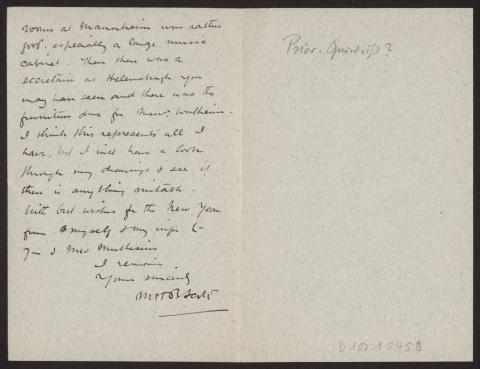 rooms at Mannheim was rather
good. especially a large music
cabinet. Then there was a
secretaire at Helensburgh you
may have seen and there was the
furniture done for Messrs. Wertheim.
I think this represents all I
have, but I will have a look
through my drawings & see if
there is anything suitable.
With best wishes for the New Year
from myself & my wife to
you & Mrs Muthesius
I remain
Yours sincerely
M H B Scott
Prior. Grundriß?
D 102-1 0458